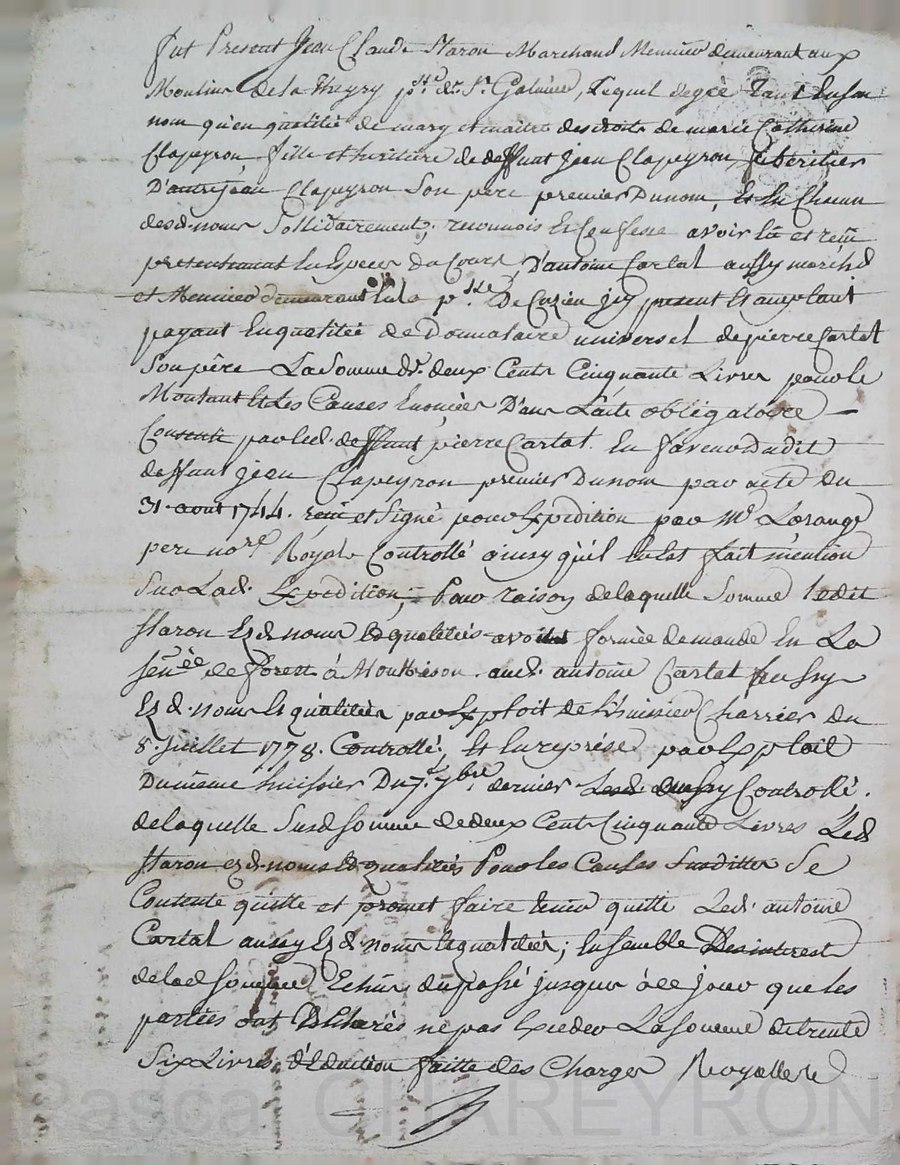 fut Present Jean Claude Staron Marchand Meunier demeurant aux
Moulins de la Theyry p.sse de St Galmier, Lequel degré tant En son
nom qu'en qualitié de mary et maitre des droits de marie Catherine
Clapeyron fille et heritière de deffunt jean Clapeyron, heritier
D'autre jean Clapeyron Son père premier Du nom, et En Chacun
desd. noms Sollidairement, reconnois Et Confesse avoir Eû et reçu
presentement En Especes du Cours, D'antoine Cartal aussy marchd
et Meunier demeurant En la p.sse De Cuzieu jcy present Et acceptant
payant En qualitée de Donnataire universel de pierre Cartal
Son père La Somme de deux Cents Cinquante Livres pour le
Montant Et Les Causes Enoncées Dans L'acte obligatoire –
Consenti par led. deffunt pierre Cartal. En faveur dudit
deffunt jean Clapeyron premier Du nom par acte du
31. aout 1744. reçu et Signé pour Expedition par Me Lorange
pere nore Royal Controllé ainsy qu'il En Est fait mention
Sur Lad. Expedition; Pour raison de laquelle Somme ledit
Staron Esd. noms Et qualitées avoit formée demande En La
Senée de forest à Montbrison aud. antoine Cartal aussy
Esd. noms Et qualitées par Exploit de L'huissier Charrier du
8. juillet 1778. Controllé, Et En reprise par Exploit
Du même huissier Du 7. 7bre dernier aussy Controllé.
de laquelle Susd Somme de deux Cents Cinquante Livres Led
Staron esd. noms Et qualitées Pour les Causes Susdittes Se
Contente quitte et promet faire tenir quitte Led. antoine
Cartal aussy Esd. noms Et qualitées; Ensemble Des interest
de lad somme Echus du passé jusques à ce jour que les
parties ont Declarés ne pas Exceder La Somme de trente
Six Livres, déduction faitte des Charges Royalles
Pascal CHAREYRON